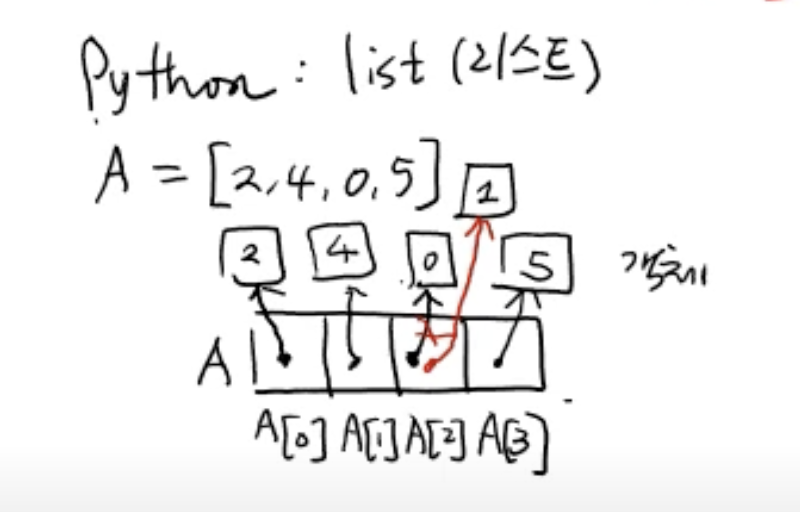 Python : list (리스트)
A = [2, 4, 0, 5]
1
2 4 0 5 객체
A
A[0] A[1] A[2] A[3]